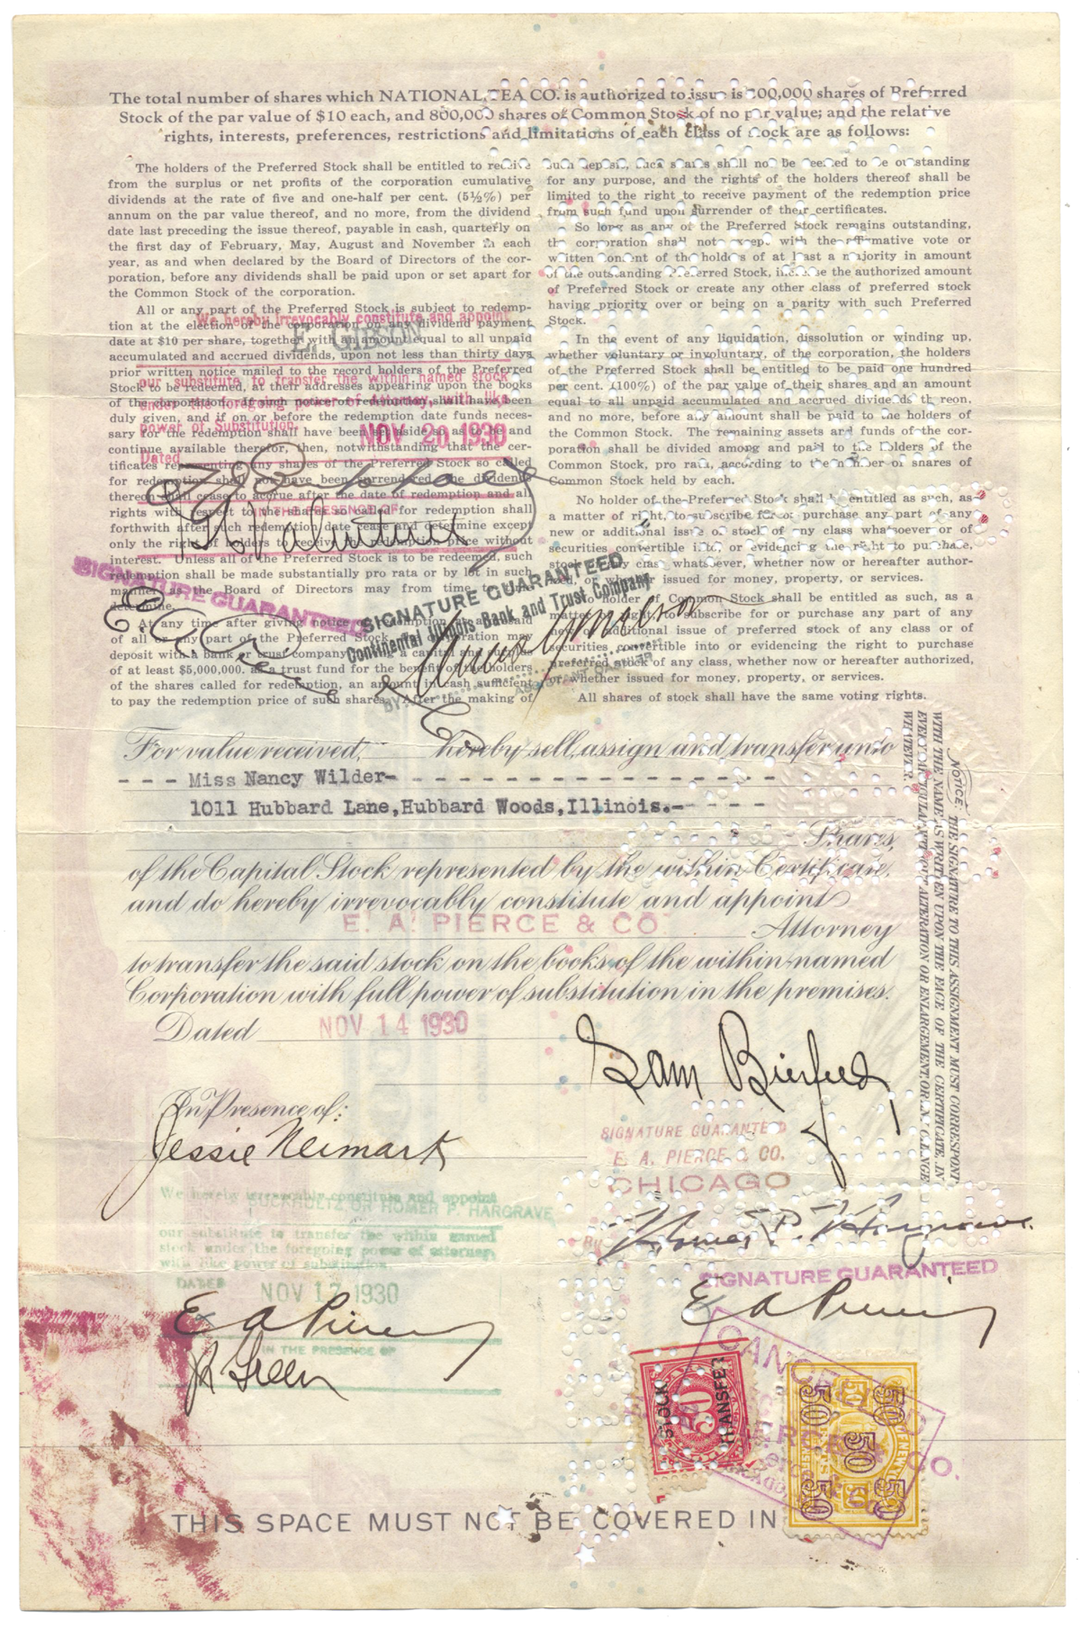 The total number of shares which NATIONAL TEA CO. is authorized to issue is 200,000 shares of Preferred
Stock of the par value of $10 each, and 800,000 shares of Common Stock of no par value; and the relative
rights, interests, preferences, restrictions and limitations of each class of stock are as follows:
The holders of the Preferred Stock shall be entitled to receive
from the surplus or net profits of the corporation cumulative
dividends at the rate of five and one-half per cent. (5½%) per
annum on the par value thereof, and no more, from the dividend
date last preceding the issue thereof, payable in cash, quarterly on
the first day of February, May, August and November in each
year, as and when declared by the Board of Directors of the cor-
poration, before any dividends shall be paid upon or set apart for
the Common Stock of the corporation.
All or any part of the Preferred Stock is subject to redemp-
tion at the election of the corporation on any dividend payment
date at $10 per share, together with an amount equal to all unpaid
accumulated and accrued dividends, upon not less than thirty days
prior written notice mailed to the record holders of the Preferred
Stock to be redeemed, at their addresses appearing upon the books
of the corporation. If such notice of redemption shall have been
duly given, and if on or before the redemption date funds neces-
sary for the redemption shall have been set aside so as to be and
continue available therefor, then, notwithstanding that the cer-
tificates representing any shares of the Preferred Stock so called
for redemption shall not have been surrendered, the dividends
thereon shall cease to accrue after the date of redemption and all
rights with respect to the shares so called for redemption shall
forthwith after such redemption date cease and determine except
only the right of holders to receive the redemption price without
interest. Unless all of the Preferred Stock is to be redeemed, such
redemption shall be made substantially pro rata or by lot in such
manner as the Board of Directors may from time to time
determine.
At any time after giving notice of redemption as aforesaid
of all or any part of the Preferred Stock the corporation may
deposit with a bank or trust company having a capital and surplus
of at least $5,000,000, as a trust fund for the benefit of the holders
of the shares called for redemption, an amount in cash sufficient
to pay the redemption price of such shares. After the making of
such deposit, such shares shall not be deemed to be outstanding
for any purpose, and the rights of the holders thereof shall be
limited to the right to receive payment of the redemption price
from such fund upon surrender of their certificates.
So long as any of the Preferred Stock remains outstanding,
the corporation shall not except with the affirmative vote or
written consent of the holders of at least a majority in amount
of the outstanding Preferred Stock, increase the authorized amount
of Preferred Stock or create any other class of preferred stock
having priority over or being on a parity with such Preferred
Stock.
In the event of any liquidation, dissolution or winding up,
whether voluntary or involuntary, of the corporation, the holders
of the Preferred Stock shall be entitled to be paid one hundred
per cent. (100%) of the par value of their shares and an amount
equal to all unpaid accumulated and accrued dividends thereon,
and no more, before any amount shall be paid to the holders of
the Common Stock. The remaining assets and funds of the cor-
poration shall be divided among and paid to the holders of the
Common Stock, pro rata, according to the number of shares of
Common Stock held by each.
No holder of the Preferred Stock shall be entitled as such, as
a matter of right, to subscribe for or purchase any part of any
new or additional issue of stock of any class whatsoever or of
securities convertible into or evidencing the right to purchase,
stock of any class whatsoever, whether now or hereafter author-
ized, or whether issued for money, property, or services.
No holder of Common Stock shall be entitled as such, as a
matter of right to subscribe for or purchase any part of any
new or additional issue of preferred stock of any class or of
securities convertible into or evidencing the right to purchase
preferred stock of any class, whether now or hereafter authorized,
or whether issued for money, property, or services.
All shares of stock shall have the same voting rights.
We hereby irrevocably constitute and appoint
E. GIBSON
our substitute to transfer the within named stock
under the foregoing power of Attorney, with like
power of Substitution.
Dated NOV 20 1930
IN THE PRESENCE OF
SIGNATURE GUARANTEED
SIGNATURE GUARANTEED
Continental Illinois Bank and Trust Company
BY
ASSISTANT CASHIER
For value received, hereby sell, assign and transfer unto
- - - Miss Nancy Wilder- - - - - - - - - - - - - - - - - -
1011 Hubbard Lane, Hubbard Woods, Illinois.- - - - -
Shares,
of the Capital Stock represented by the within Certificate,
and do hereby irrevocably constitute and appoint
E. A. PIERCE & CO. Attorney
to transfer the said stock on the books of the within-named
Corporation with full power of substitution in the premises.
Dated NOV 14 1930
NOTICE: THE SIGNATURE TO THIS ASSIGNMENT MUST CORRESPOND
WITH THE NAME AS WRITTEN UPON THE FACE OF THE CERTIFICATE, IN
EVERY PARTICULAR, WITHOUT ALTERATION OR ENLARGEMENT, OR ANY CHANGE
WHATEVER.
Sam Bierfeld
In Presence of:
Jessie Neimark
SIGNATURE GUARANTEED
E. A. PIERCE & CO.
CHICAGO
By Homer P. Hargrave
We hereby irrevocably constitute and appoint
BUCKHOLTZ OR HOMER P. HARGRAVE
our substitute to transfer the within named
stock under the foregoing power of attorney,
with like power of substitution.
DATED
NOV 17 1930
SIGNATURE GUARANTEED
E A Pierce
E A Pierce
IN THE PRESENCE OF
STOCK TRANSFER
50
50
NEW YORK
THIS SPACE MUST NOT BE COVERED IN